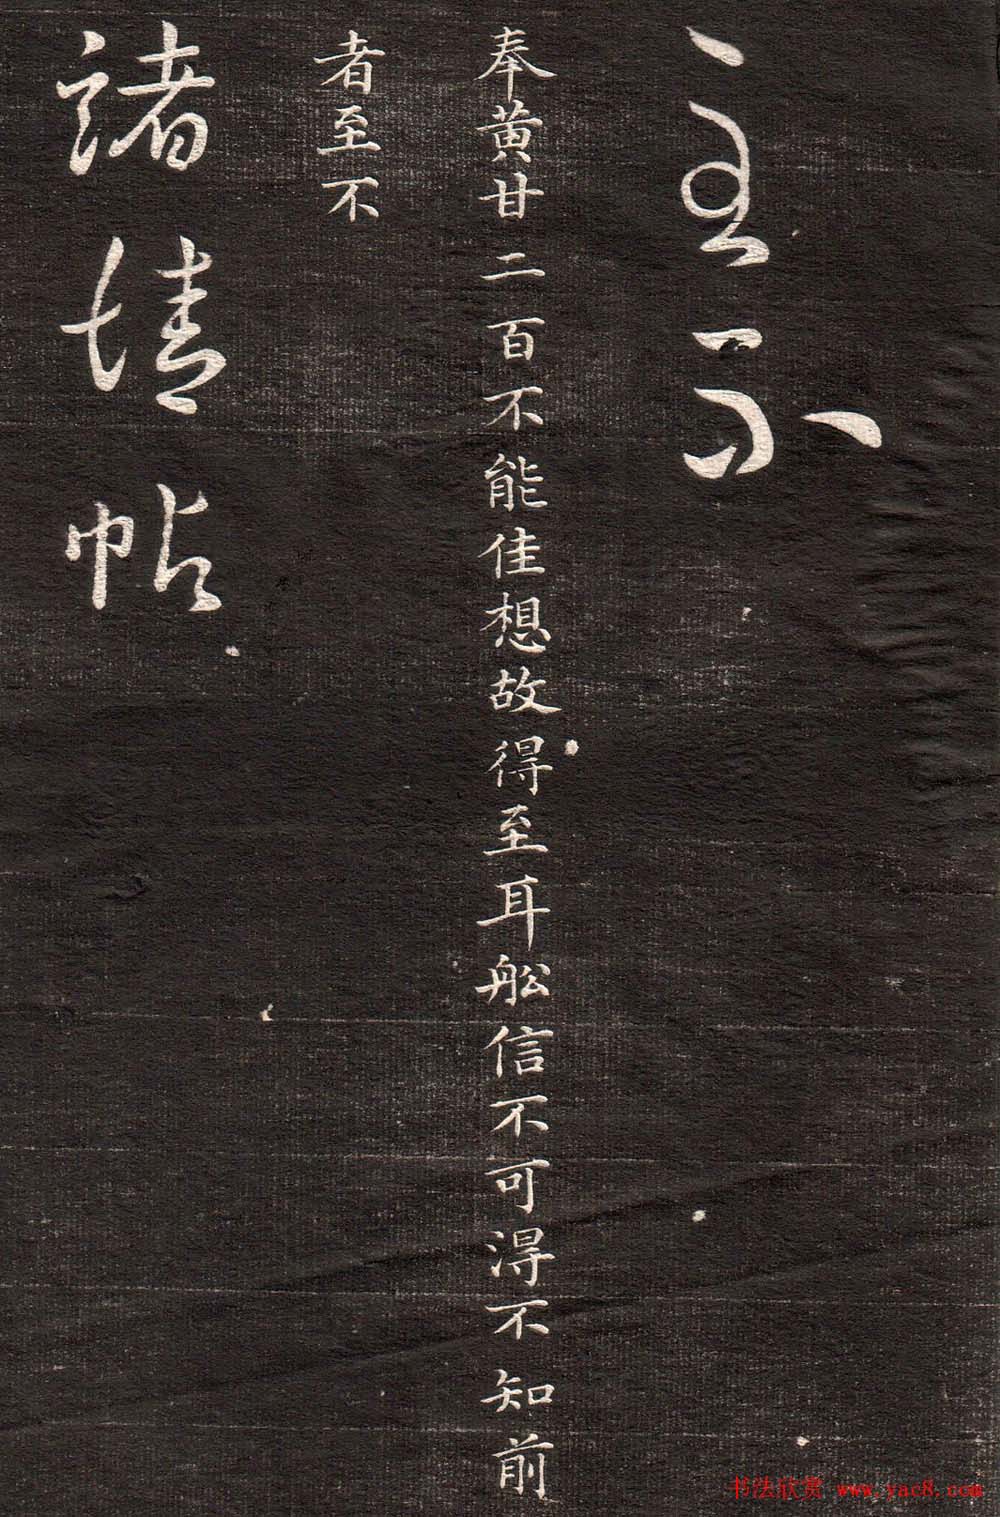 至不
奉黄甘二百不能佳想故得至耳舩信不可淂不知前
者至不
諸情帖
书法欣赏 www.yac8.com